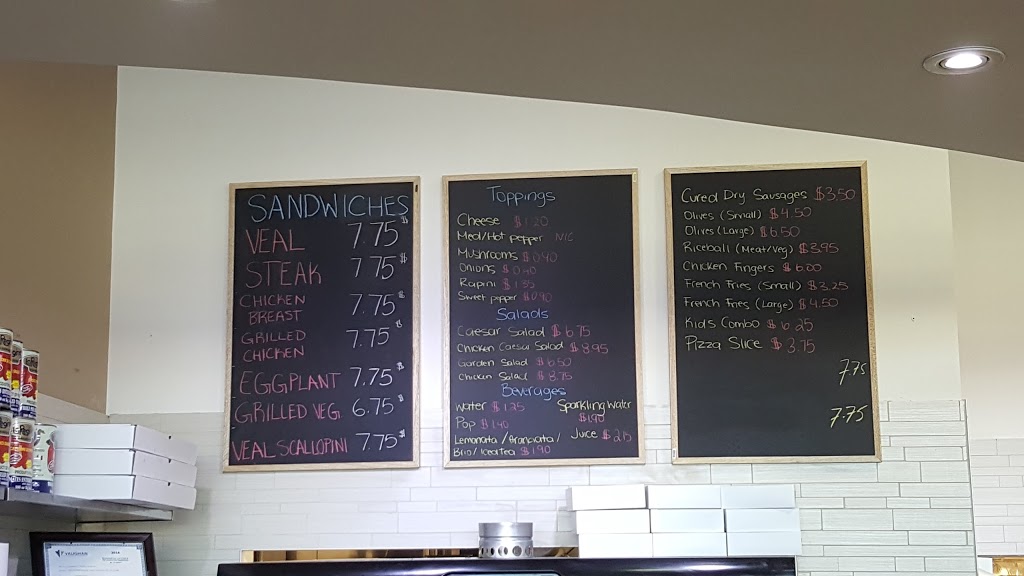 SANDWICHES
VEAL 7.75$
STEAK 7.75$
CHICKEN
BREAST 7.75$
GRILLED
CHICKEN 7.75$
EGGPLANT 7.75$
GRILLED VEG. 6.75$
VEAL SCALLOPINI 7.75$
Toppings
Cheese $1.20
Med/Hot pepper N/C
Mushrooms $0.90
Onions
Rapini
Sweet pepper $0.90
Salads
Caesar Salad $6.75
Chicken Caesar Salad $8.95
Garden Salad $6.50
Chicken Salad $8.75
Beverages
Water $1.25
Sparkling Water
$1.90
Pop $1.40
Lemonata / Aranciata /
Brio / Icea tea $1.90
Juice
Cured Dry Sausages $3.50
Olives (Small) $4.50
Olives (Large) $6.50
Riceball (Meat/Veg) $3.95
Chicken Fingers $6.00
French Fries (Small) $3.25
French Fries (Large) $4.50
Kid's Combo $6.25
Pizza Slice $3.75
7.75
7.75
VAUGHAN